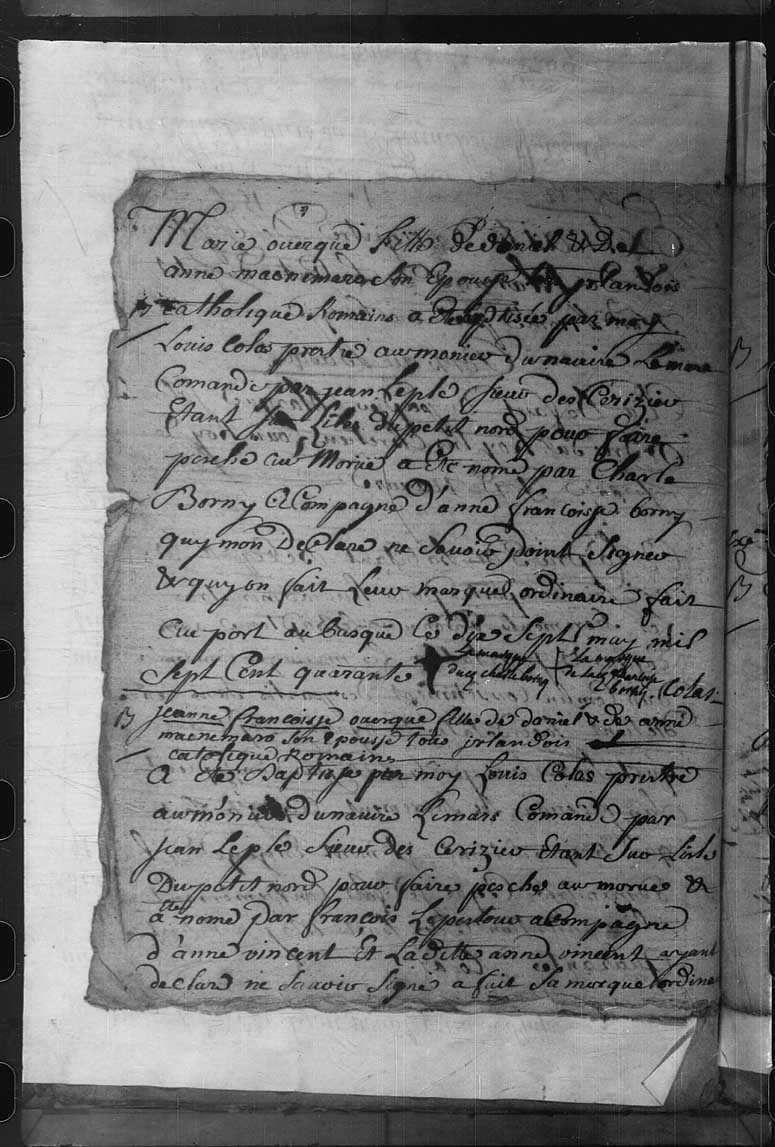 Marie ouerque fille de daniel & De
anne macnemara son Epouse irlandois
B catholique Romains a Ete baptisée par moy
Louis Colas prestre aumonier du navire Le mars
Comandé par jean Leple sieur des Cerizier
Etant sur L'ile du petit nord pour faire
pesche au Morue a Ete nomé par Charle
Borny acompagné d'anne françoisse borny
quy mon Declare ne savoir point signer
& quy on fait Leur marque ordinaire fait
au port au basque ce dix sept may mil
sept Cent quarante La marque
du cy charle borny La marque
de borny Colas
B jeanne françoisse ouerque fille de daniel & de anne
macnemara son Epousse tous jrlandois
catolique Romains
A ete Baptisse par moy Louis Colas prestre
aumônier du navire Le mars Comandé par
jean Leple sieur des Cerizier Etant sur L'isle
Du petit nord pour faire pesche au morue &
a ete nomé par françois Lepertour acompagné
d'anne vincent Et La ditte anne vincent ayant
declare ne savoir signé a fait sa marque ordine